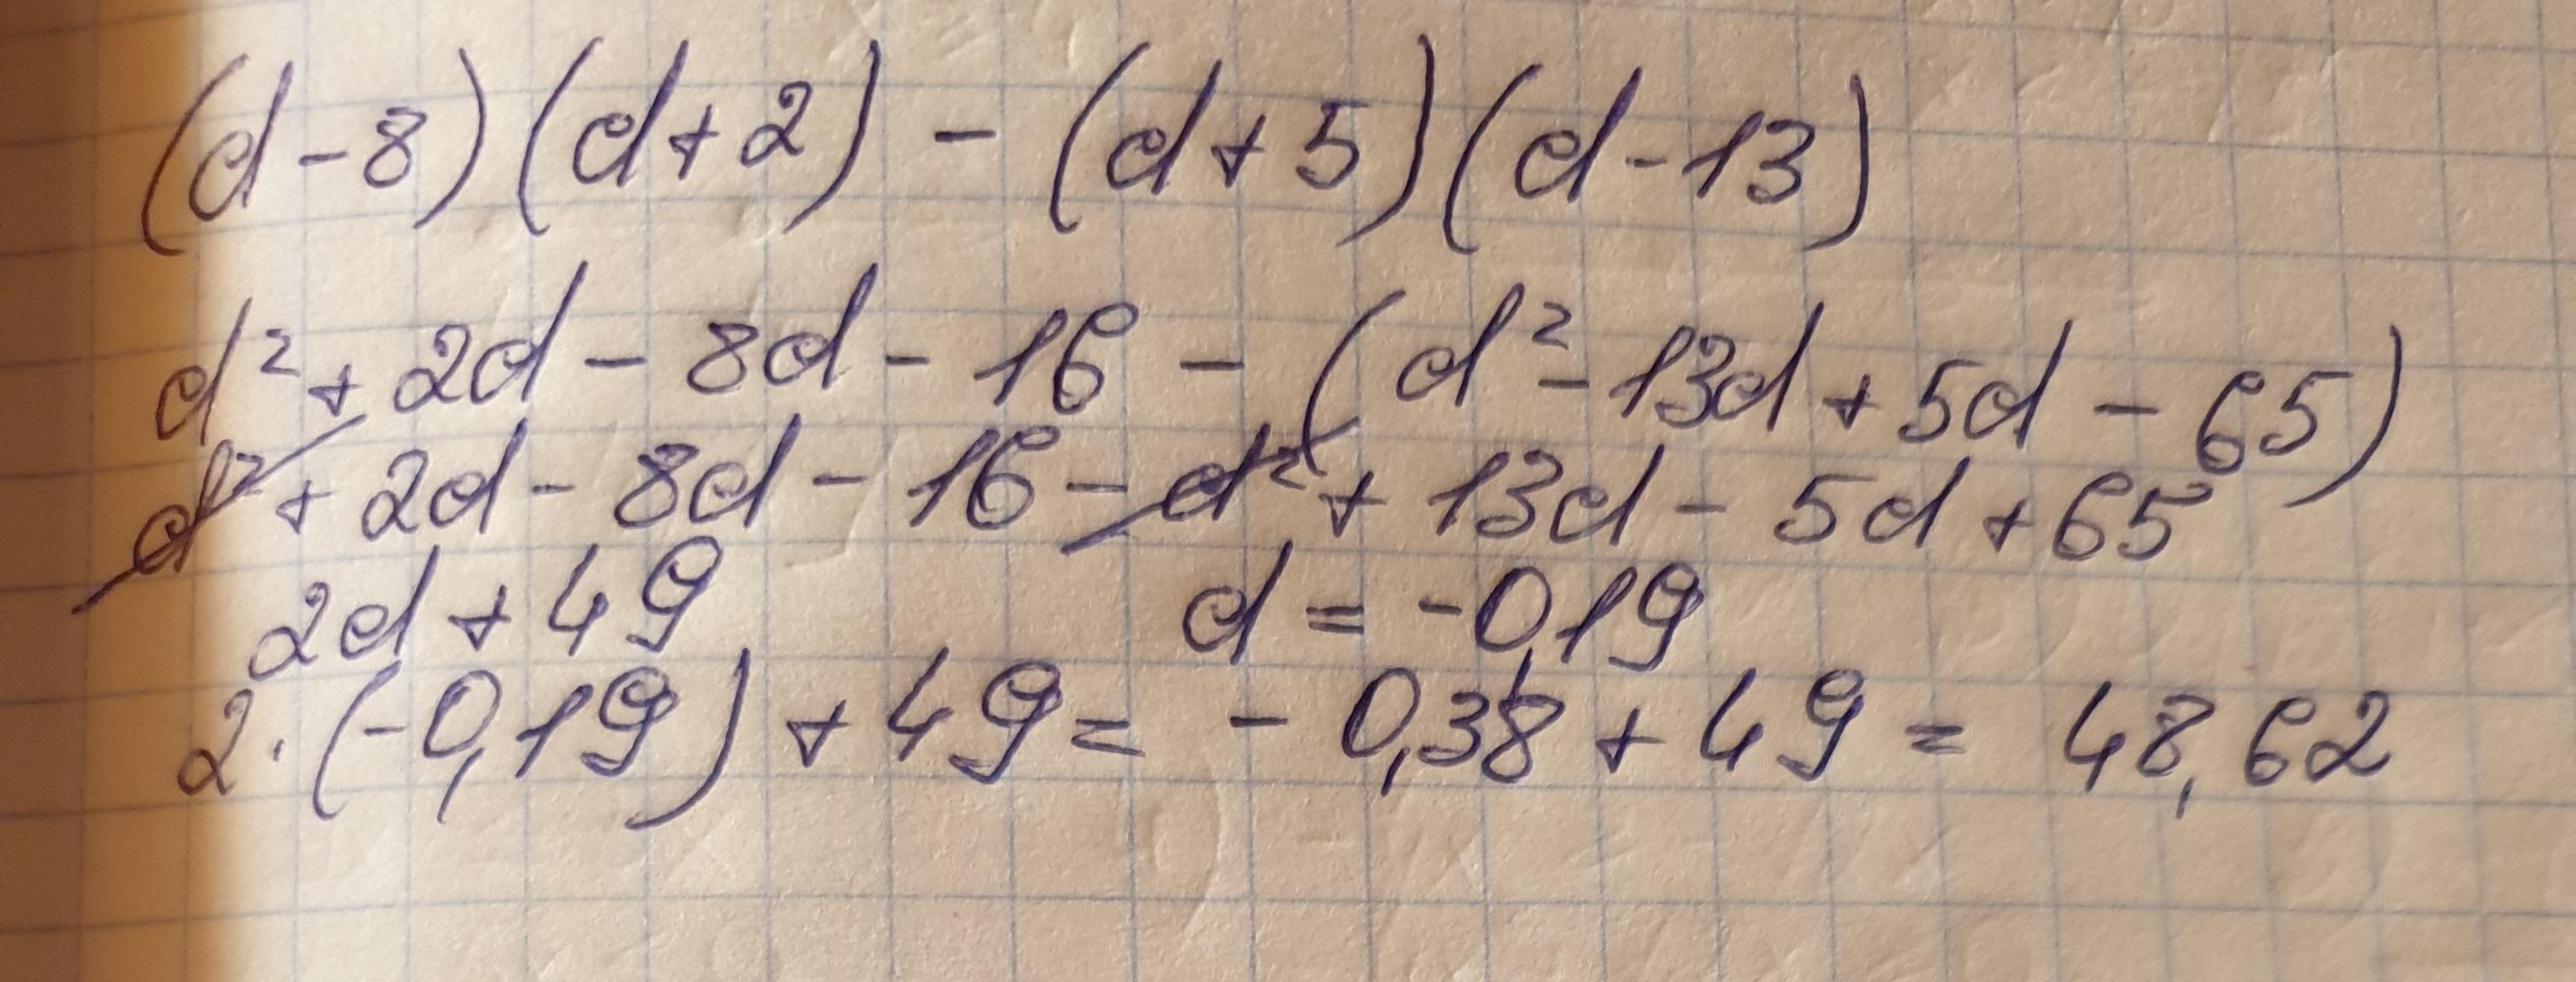 (d-8)(d+2) - (d+5)(d-13)
d² + 2d - 8d - 16 - (d² - 13d + 5d - 65)
d² + 2d - 8d - 16 - d² + 13d - 5d + 65
2d + 49 d = -0,19
2·(-0,19) + 49 = -0,38 + 49 = 48,62